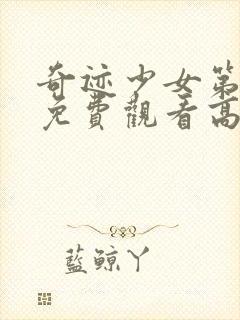 奇迹少女第
免費觀看高
藍鯨丫